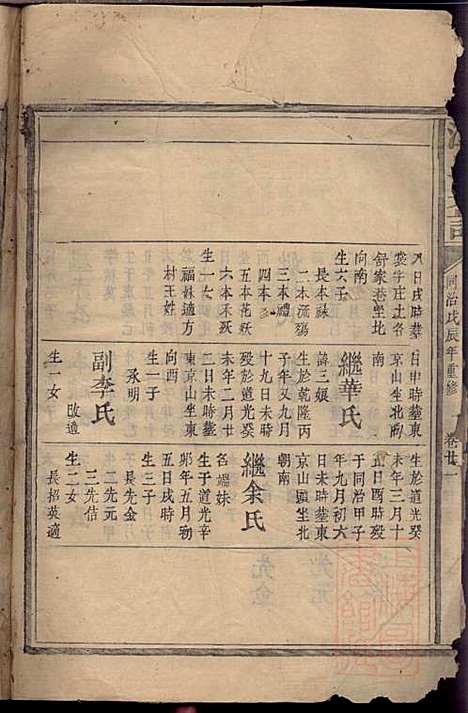 同治戊辰年重修
卷廿一
八日戌時葬
裳字庄土名
舒家巷坐北
向南
生六子
長本詠
二本
三本禮
四本
五本花殀
六本禾殀
生一女
福妹適方
村王姓
日申時葬東
京山坐北向
南
繼華氏
諱三娘
生於乾隆丙
子年又九月
十九日未時
歿於道光癸
未年二月廿
二日未時葬
東京山坐東
向西
生一子
永明
副李氏
生一女
改適
生於道光癸
未年三月十
五日酉時歿
于同治甲子
年九月初六
日未時葬東
京山頭坐北
朝南
繼余氏
名端妹
生于道光辛
卯年五月初
五日戌時
生三子
長先金
二先元
三先佶
生二女
長招英適